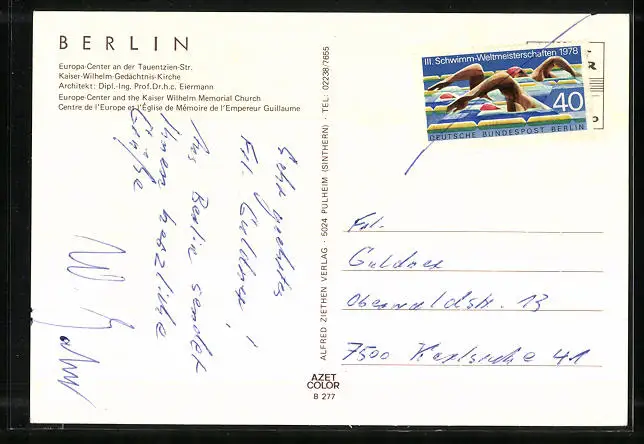 BERLIN
Europa-Center an der Tauentzien-Str.
Kaiser-Wilhelm-Gedächtnis-Kirche
Architekt: Dipl.-Ing. Prof.Dr.h.c. Eiermann
Europe-Center and the Kaiser Wilhelm Memorial Church
Centre de l'Europe et l'Église de Mémoire de l'Empereur Guillaume
Sehr geehrtes
Frl. Güldner!
Aus Berlin sendet
Ihnen herzliche
Grüße
W.
ALFRED ZIETHEN VERLAG · 5024 PULHEIM (SINTHERN) · TEL. 02238/7655
AZET
COLOR
B 277
III. Schwimm-Weltmeisterschaften 1978
40
DEUTSCHE BUNDESPOST BERLIN
Frl.
Güldner
Oberwaldstr. 13
7500 Karlsruhe 41